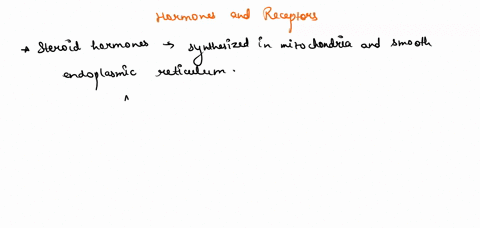 Hormones and Receptors
* Steroid hormones → synthesized in mitochondria and smooth
endoplasmic reticulum.